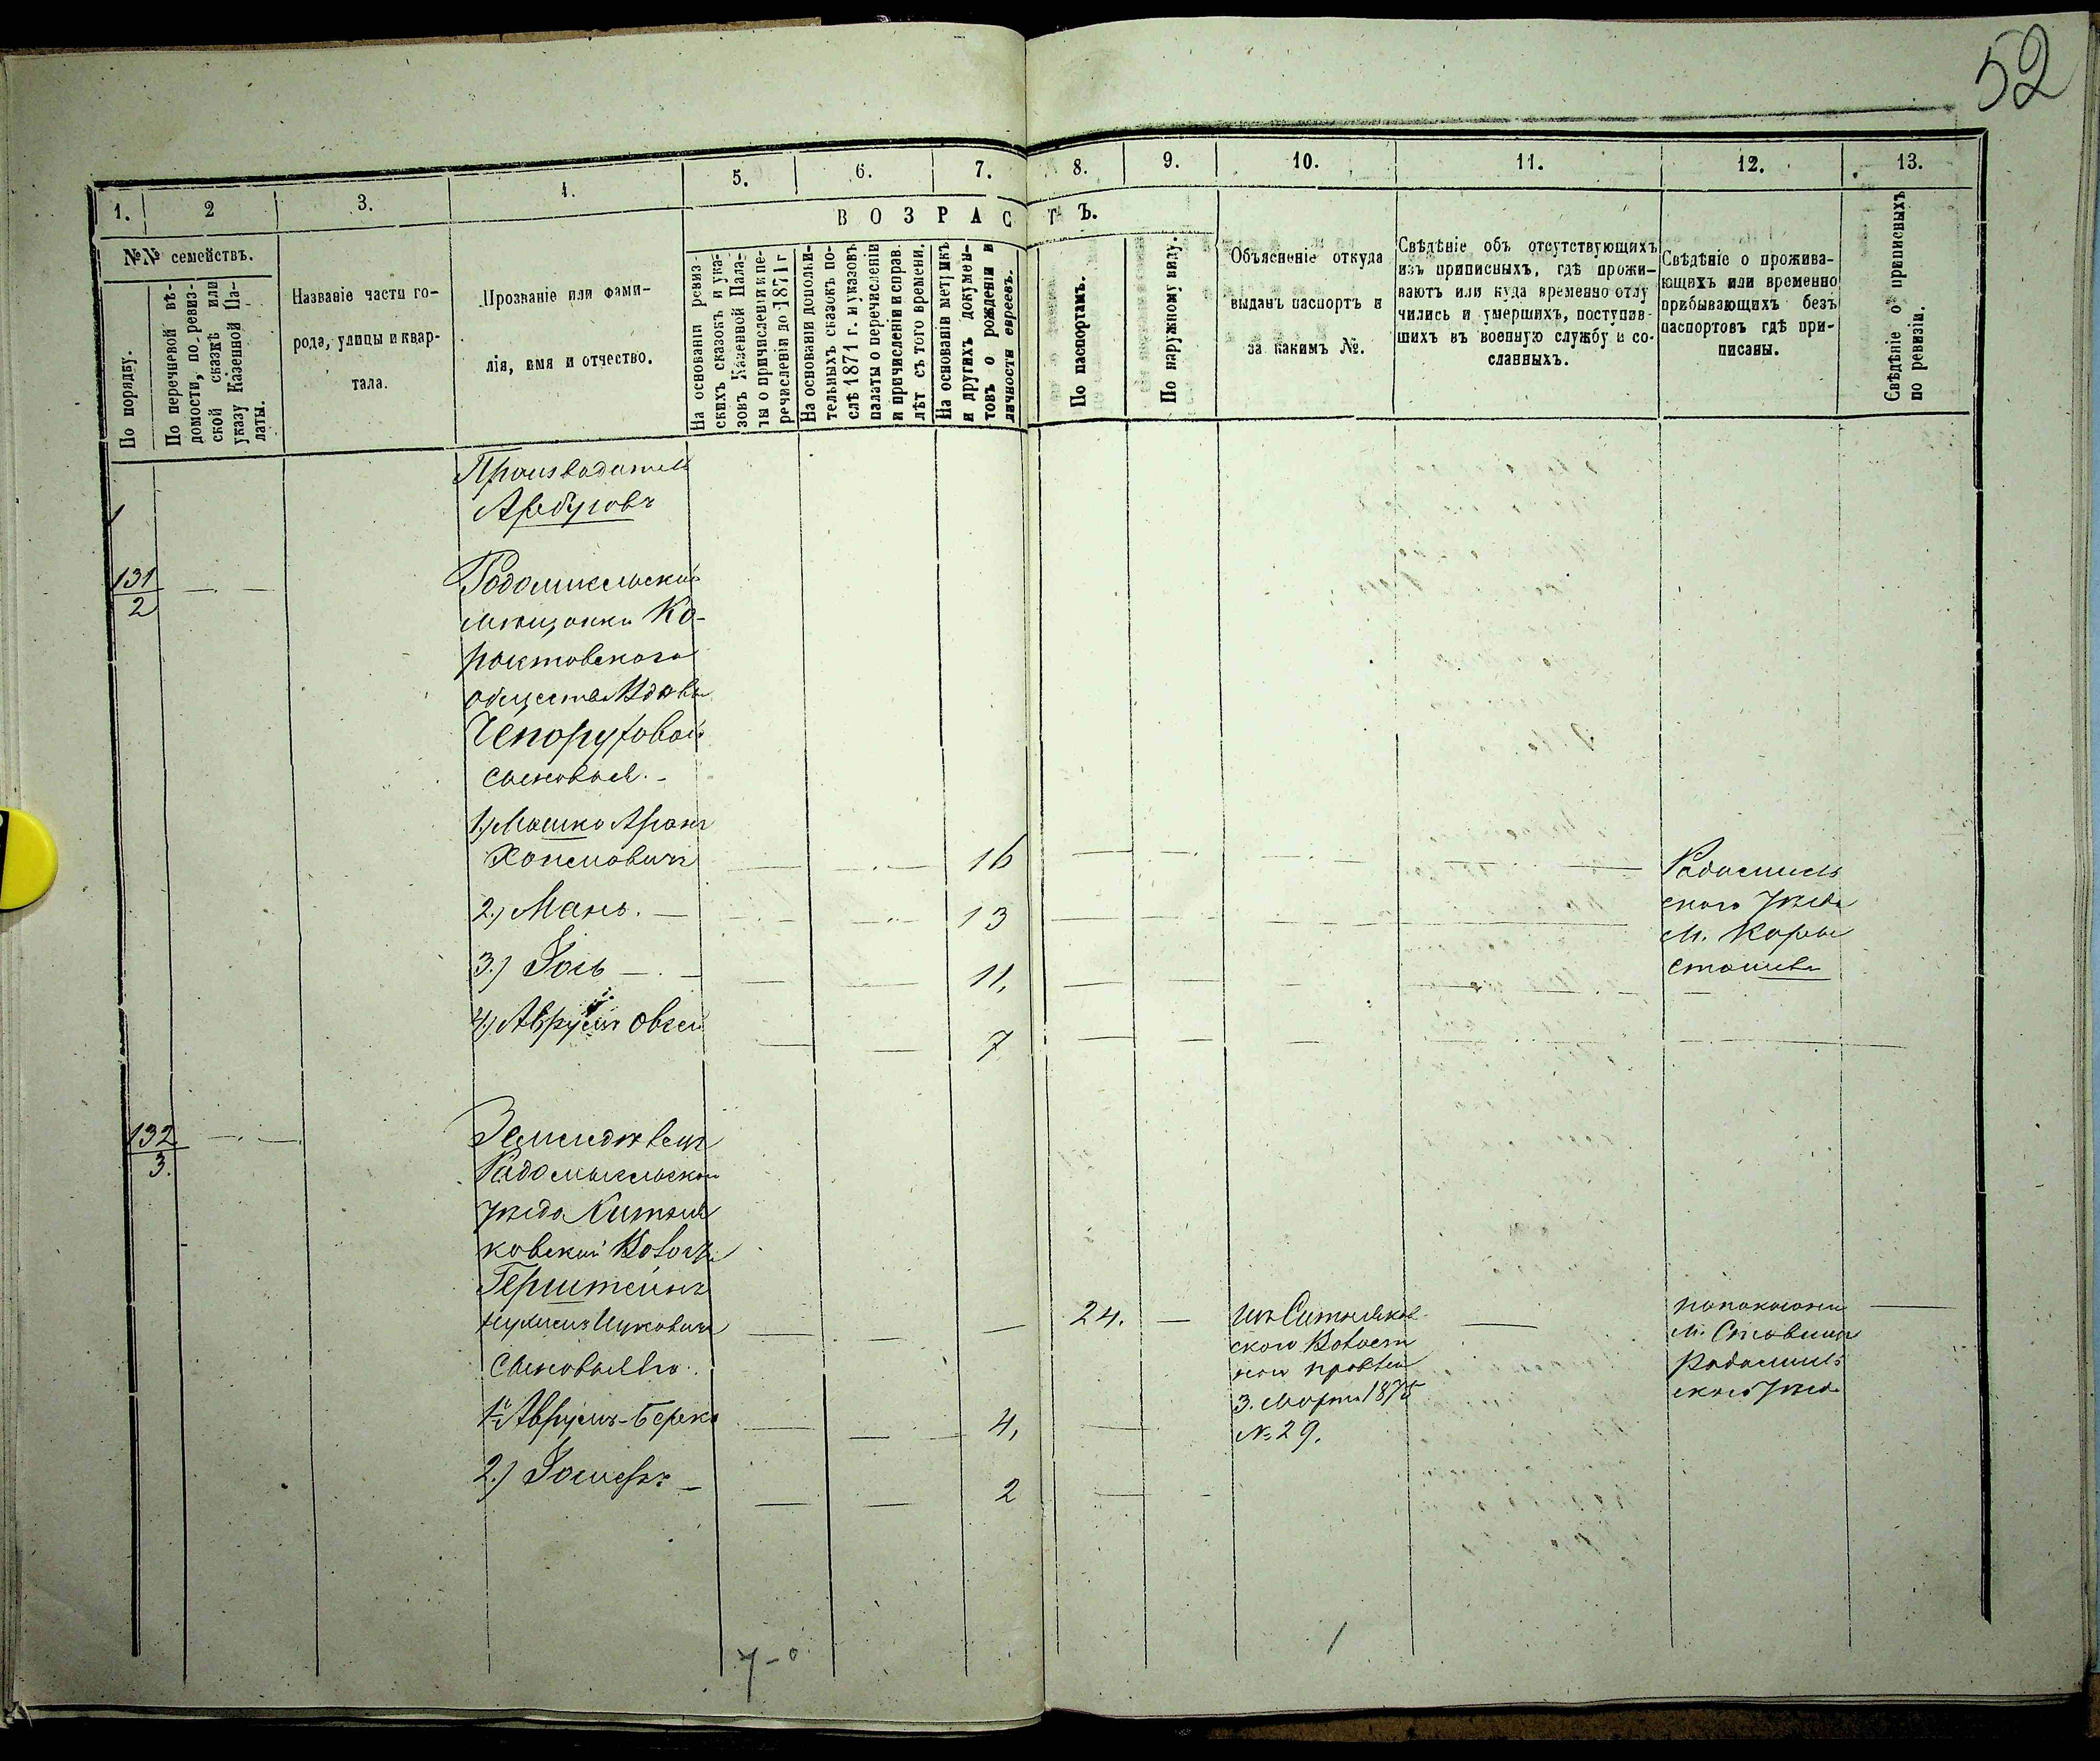 52
1.
2
3.
4.
5.
6.
7.
8.
9.
10.
11.
12.
13.
№№ семействъ.
По порядку.
По перечневой вѣ-
домости, по ревиз-
ской сказкѣ или
указу Казенной Па-
латы.
Названіе части го-
рода, улицы и квар-
тала.
Прозваніе или фами-
лія, имя и отчество.
ВОЗРАСТЪ.
На основаніи ревиз-
скихъ сказокъ и ука-
зовъ Казенной Пала-
ты о причисленіи и пе-
речисленіи до 1871 г
На основаніи дополни-
тельныхъ сказокъ по-
слѣ 1871 г. и указовъ
палаты о перечисленіи
и причисленіи и справ.
лѣт съ того времени.
На основаніи метрикъ
и другихъ докумен-
товъ о рожденіи и
личности евреевъ.
По паспортамъ.
По наружному виду.
Объясненіе откуда
выданъ паспортъ и
за какимъ №.
Свѣдѣніе объ отсутствующихъ
изъ приписныхъ, гдѣ прожи-
ваютъ или куда временно отлу
чились и умершихъ, поступив-
шихъ въ военную службу и со-
сланныхъ.
Свѣдѣніе о прожива-
ющихъ или временно
прибывающихъ безъ
паспортовъ гдѣ при-
писаны.
Свѣдѣніе о приписныхъ
по ревизіи.
Производитель
131
2
мѣщанки Ко-
общества Вдовы
сыновья.
1) Мошко Аронъ
16
2.) Мань.
13
3.) Іось
11,
4) Аврумъ Овсей
7
Радомысль
скаго Уѣзда
м. Коры
стышева
132
3.
Земледѣлецъ
Радомысльскаго
уѣзда Ситня
ковской Волости
Герштейнъ
Ицковичъ
24.
Сыновья Его.
1й Аврумъ-Берко
4,
2.) Іосифъ
2
изъ Ситняков
скаго Волост
наго правлен
3. Марта 1875
№ 29.
м. Ставищи
Радомысль
скаго Уѣзда